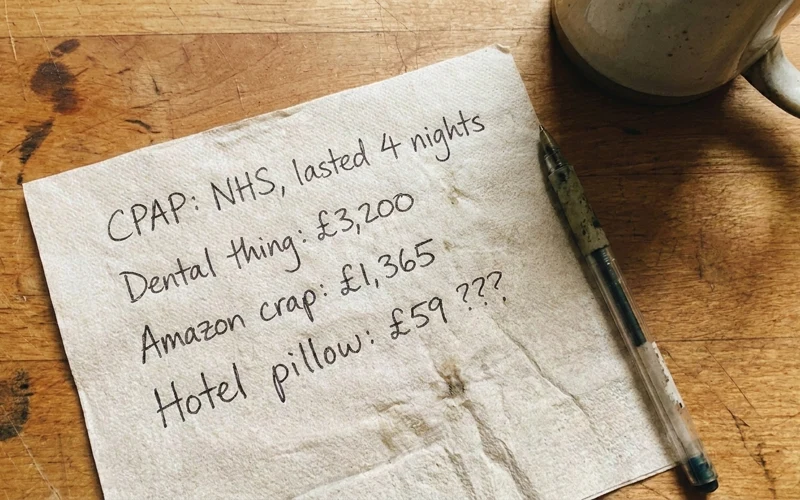 CPAP: NHS, lasted 4 nights
Dental thing: £3,200
Amazon crap: £1,365
Hotel pillow: £59 ???